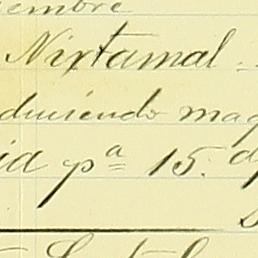 iembre
Nixtamal
duciendo maq
ia pª 15. d